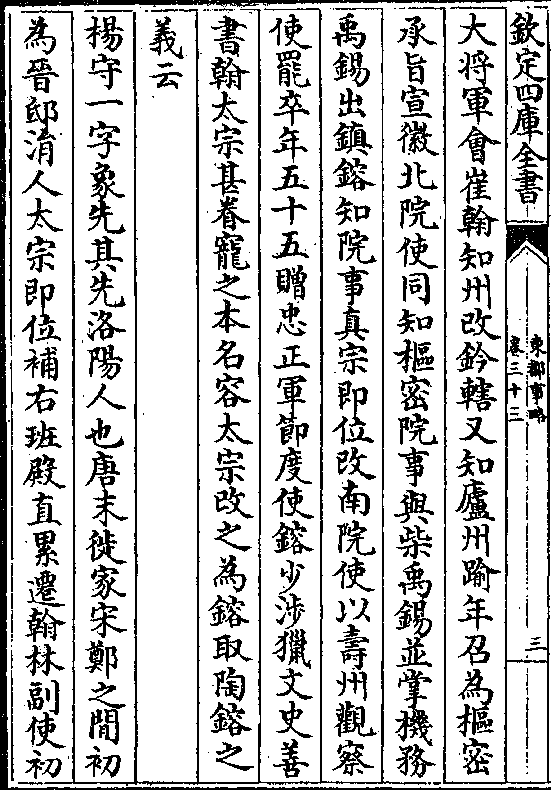 欽定四庫全書
東都事略
卷三十三
三
大將軍會崔翰知州改鈐轄又知廬州踰年召為樞密
承旨宣徽北院使同知樞密院事與柴禹錫並掌機務
禹錫出鎮鎔知院事真宗即位改南院使以壽州觀察
使罷卒年五十五贈忠正軍節度使鎔少涉獵文史善
書翰太宗甚眷寵之本名容太宗改之為鎔取陶鎔之
義云
楊守一字象先其先洛陽人也唐末徙家宋鄭之間初
為晉邸涓人太宗即位補右班殿直累遷翰林副使初